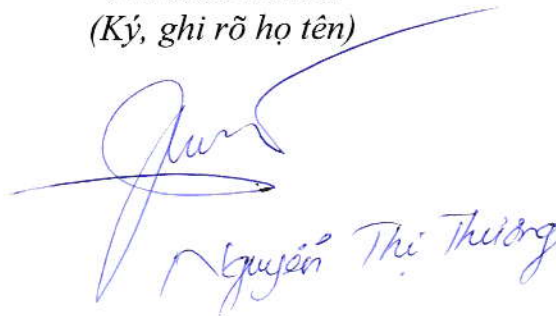 (Ký, ghi rõ họ tên)
Nguyễn Thị Thương